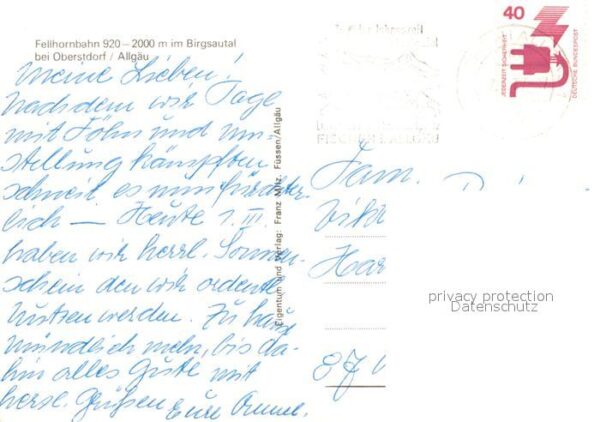 Fellhornbahn 920 – 2000 m im Birgsautal
bei Oberstdorf / Allgäu
Meine Lieben!
nachdem wir Tage
mit Föhn und Um-
stellung kämpften
schneit es nun fürchter-
lich — Heute 1. III.
haben wir herrl. Sonnen-
schein den wir ordentl.
nützen werden. Zu Haus
mündlich mehr, bis da-
hin alles Gute mit
herzl. Grüßen Eure
Eigentum und Verlag: Franz Milz, Füssen/Allgäu
40
JEDERZEIT SICHERHEIT
DEUTSCHE BUNDESPOST
Fam.
Har
871
privacy protection
Datenschutz